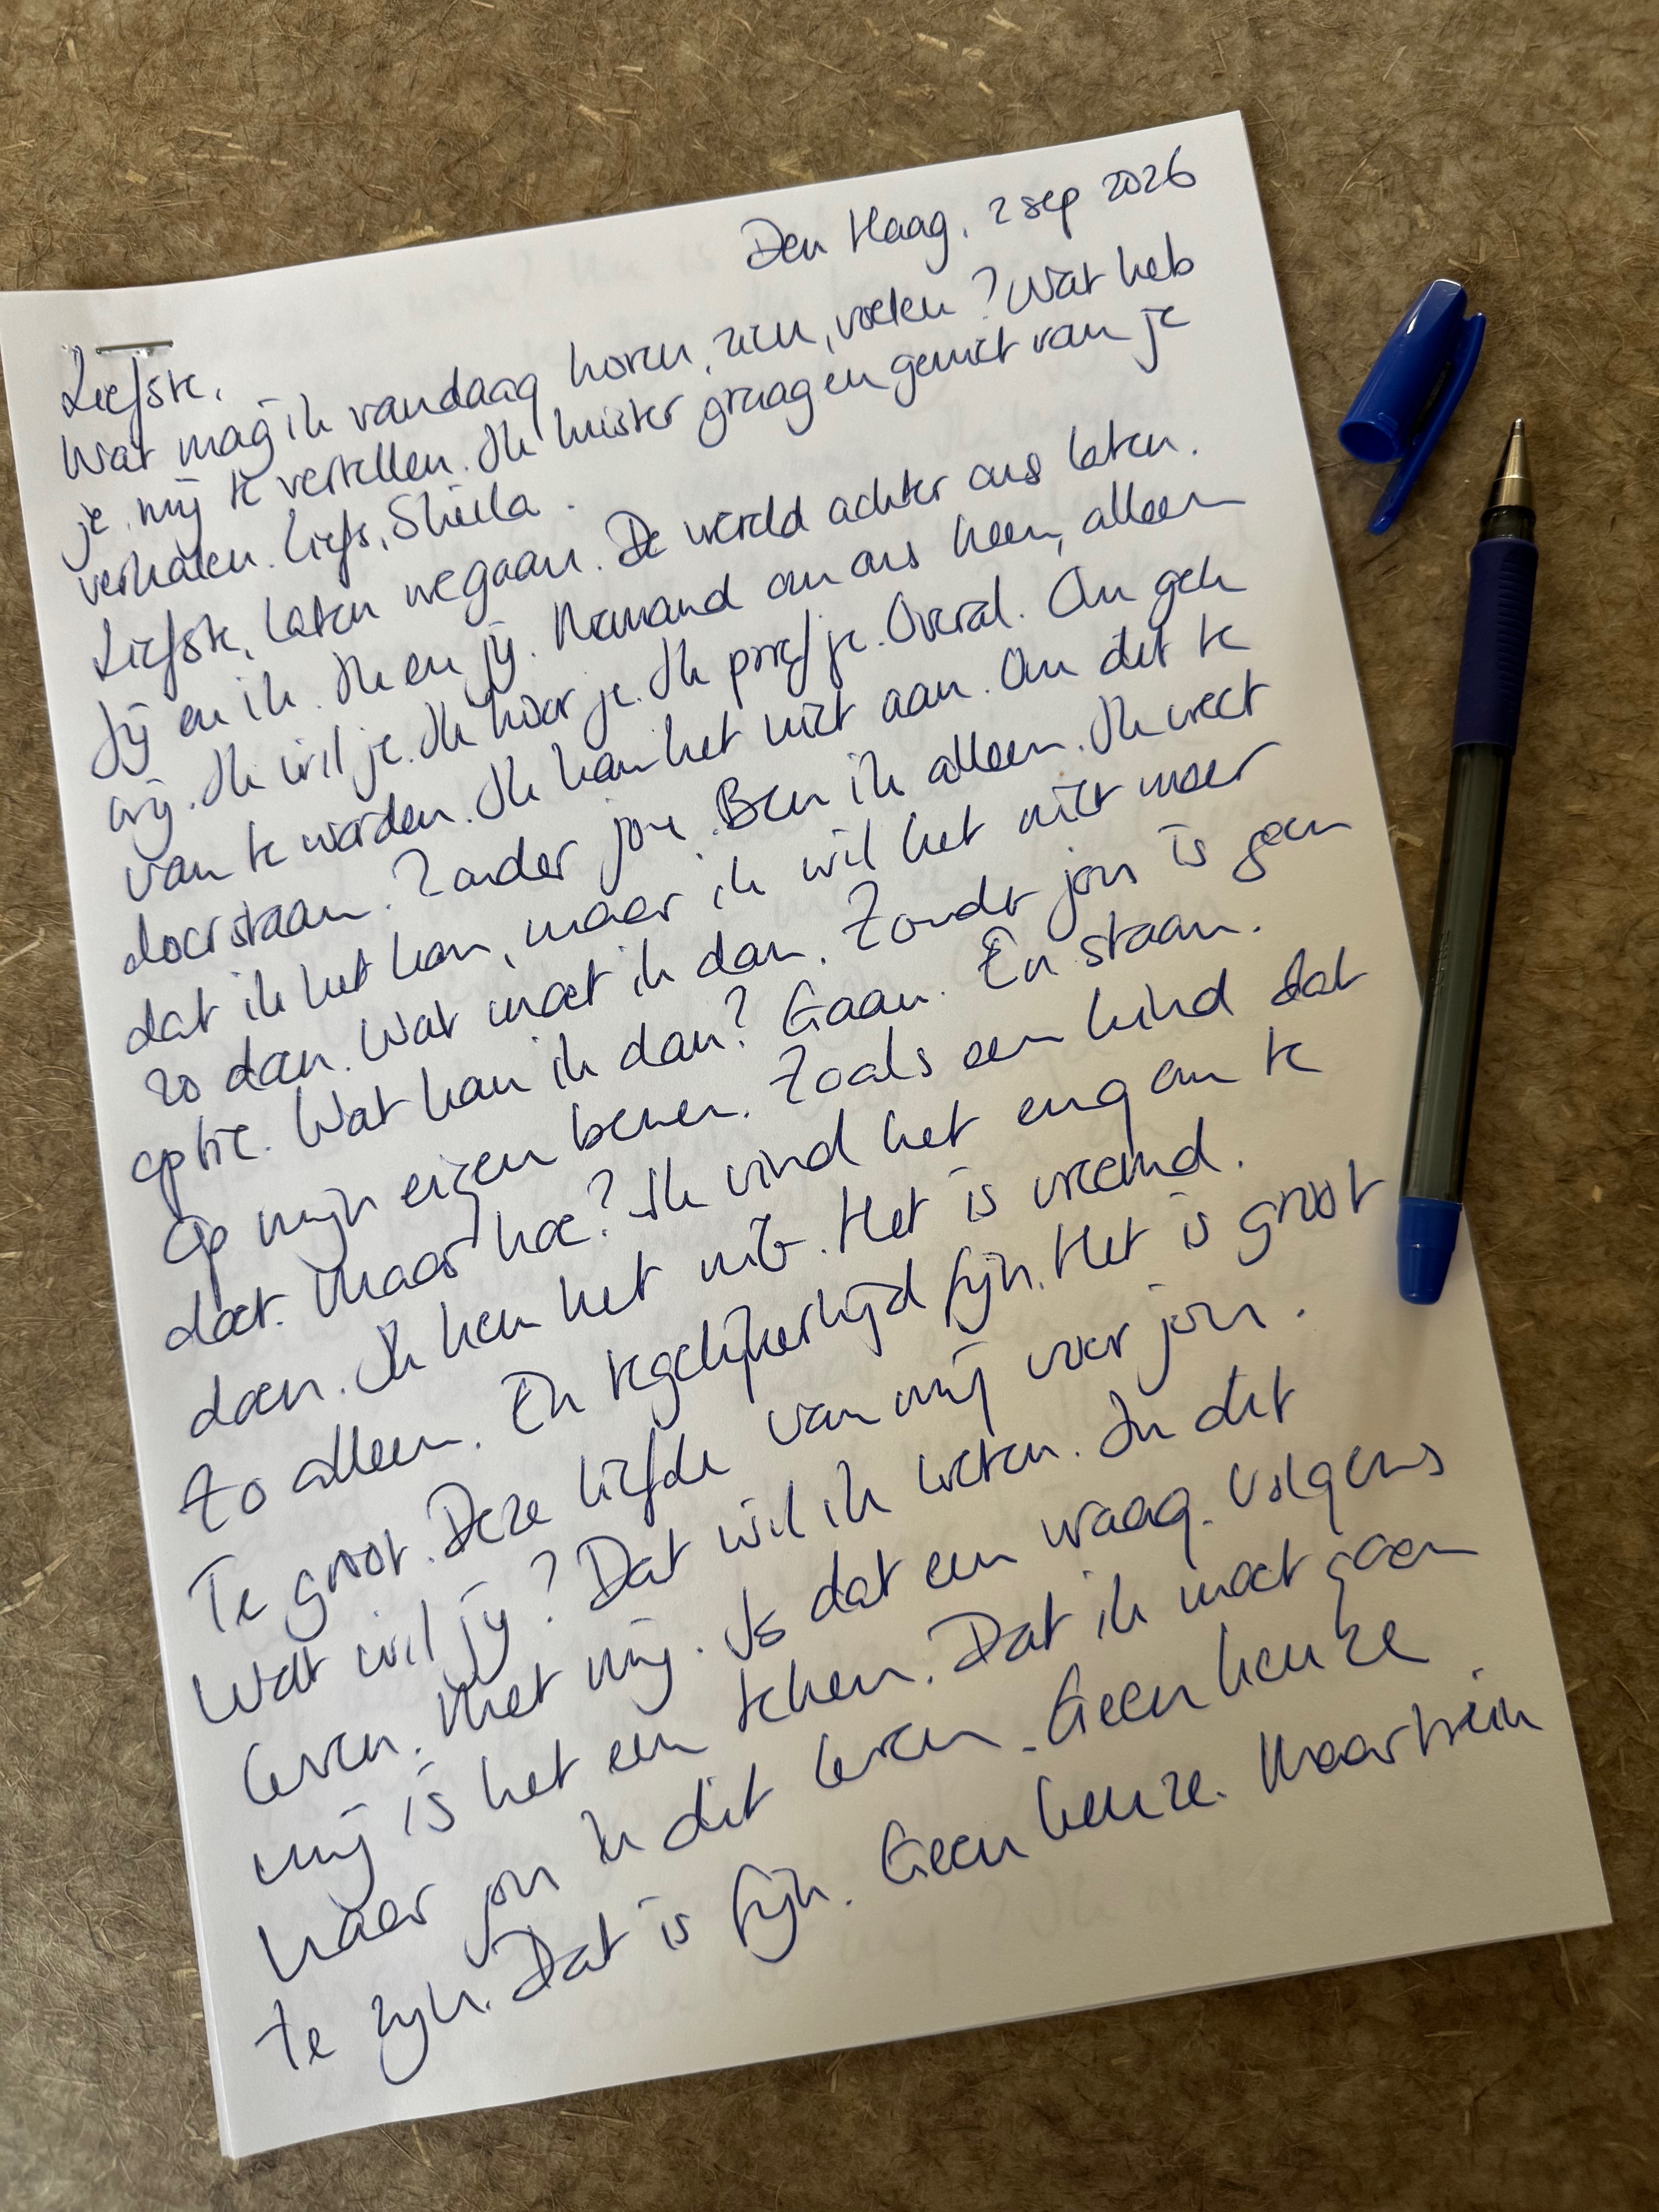 Den Haag, 2 sep 2026
Liefste,
Wat mag ik vandaag horen, zien, voelen? Wat heb
je mij te vertellen. Ik luister graag en geniet van je
verhalen. Liefs, Sheila.
Liefste, laten we gaan. De wereld achter ons laten.
Jij en ik. Ik en jij. Niemand om ons heen, alleen
wij. Ik wil je. Ik hoor je. Ik proef je. Overal. Om gek
van te worden. Ik kan het niet aan. Om dit te
doorstaan. Zonder jou. Ben ik alleen. Ik weet
dat ik het kan, maar ik wil het niet meer
zo dan. Wat moet ik dan. Zonder jou is geen
optie. Wat kan ik dan? Gaan. En staan.
Op mijn eigen benen. Zoals een kind dat
doet. Maar hoe? Ik vind het eng om te
doen. Ik ken het niet. Het is vreemd.
Zo alleen. En tegelijkertijd fijn. Het is groot
Te groot. Deze liefde van mij voor jou.
Wat wil jij? Dat wil ik weten. In dit
leven. Met mij. Is dat een vraag. Volgens
mij is het een teken. Dat ik moet gaan
naar jou in dit leven. Geen keuze
te zijn. Dat is fijn. Geen keuze. Maar